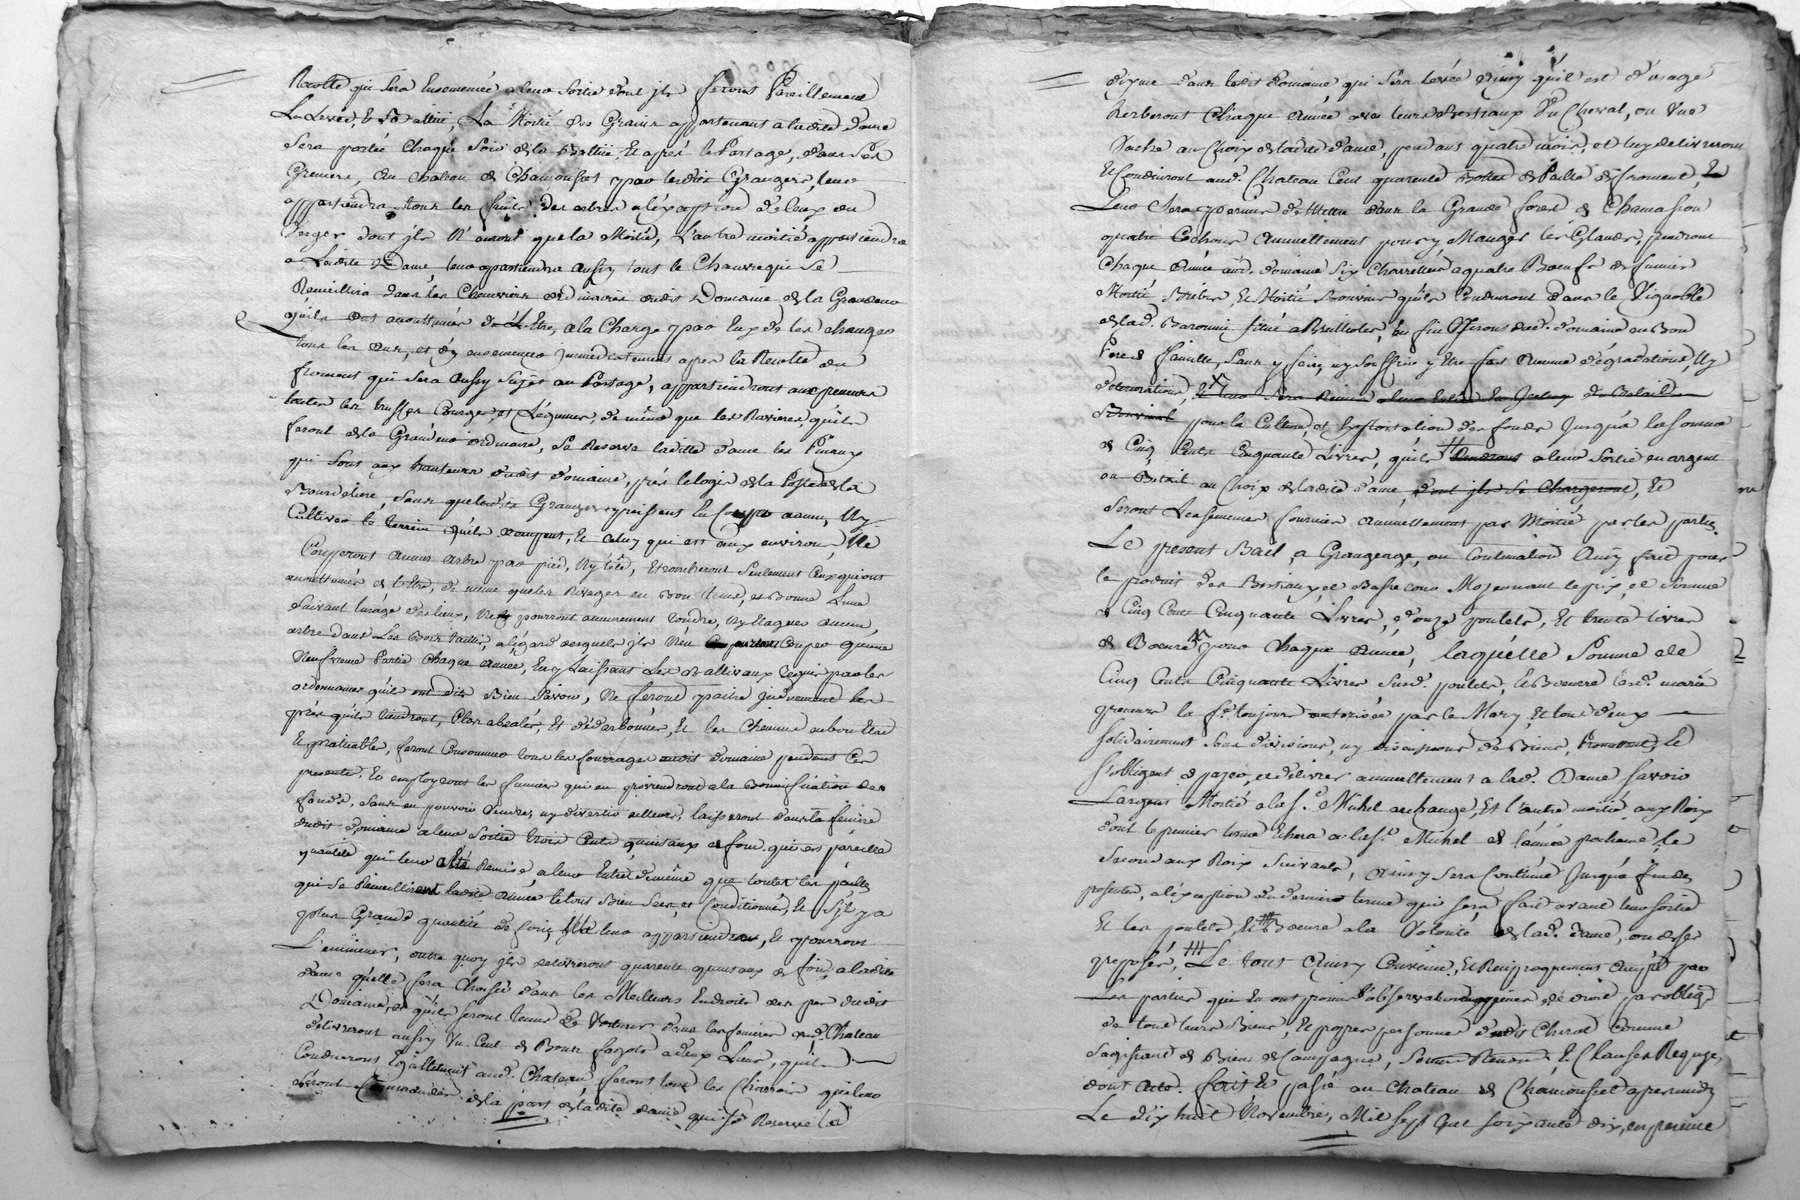 Recolte qui sera Ensemencée a leur sortie dont jls feront Pareillement
La Levée, & Battue, La Moitié des Grains appartenant a ladite dame
Sera portée Chaque fois de la Battue, Et aprés le Partage, dans les
Greniers, du chateau de Chamousset par lesdits Grangers, leur
appartiendra tous les fruits des arbres a l'éxception de Ceux du
Verger dont jls N'auront que la Moitié, L'autre moitié appartiendra
a Ladite Dame, leur appartiendra Aussy tout le Chanvre qui Se
Recuillira dans les Chenevieres dudit Domaine de la
qu'ils ont accoutumés de a la Charge par Eux de les changer
tous les ans, et d'y ensemencer jmmédiatement apres la Recolte du
froment qui sera Aussy Sujet au Partage, appartiendront aux preneurs
toutes les truffes Courges, et Légumes, de même que les Ravieres, qu'ils
feront de la Grandeur ordinaire, Se Reserve ladite dame les Pineaux
qui sont aux hauteurs dudit domaine, prés le logis de la Poste de la
Sans que lesdits Grangers puissent En Couper aucun, Ny
Cultiver le terrein qu'ils occupent, Et Celuy qui est aux environs, Ne
Couperont aucun arbre par pied, Ny tête, Et Seulement Ceux qui ont
accoutumés de L'Etre, de même que les Rivages en Bon tems, et Bonne Lune
Suivant l'usage des lieux, Ne pourront aucunement tondre, Ny Elaguer Aucun
arbre dans Les Bois taillis, a l'égard desquels jls N'en Couper qu'une
Neufvieme Partie Chaque Année, En y Laissant Les Balliveaux Requis par les
ordonnances qu'ils ont dit Bien Savoir, Ne feront paitre les
prés qu'ils tiendront, Clos et Et les Chemins en bon Etat
Et pratiquables, feront Consommer tous les fourrages audit domaine pendant Ces
presentes, Et employeront les fumiers qui en proviendront a la Bonnification des
fonds, Sans en pouvoir Vendre, ny divertir ailleurs, laisseront dans la feniere
dudit Domaine a leur Sortie trois Cents quintaux de foin qui est pareille
quantité qui leur a été Remise a leur Entrée de même que toutes les pailles
qui se Recuilliront ladite Année le tout Bien Sec, et Conditionné, Et S'jl y a
plus Grande quantité de foin, Elle leur appartiendra, Et pourront
L'emmener, outre quoy jls delivreront quarante quintaux de foin a ladite
dame qu'elle fera Choisir dans les Meilleurs Endroits des prés dudit
Domaine, et qu'ils seront tenus de Voiturer dans les fenieres dud. Chateau
delivreront aussy Un Cent de Bons fagots a deux Liens, qu'ils
Conduiront Egallement aud. Chateau, feront tous les Charrois qui leur
Seront Commandés de la part de ladite dame qui se Reserve la
dixme dans ledit domaine qui sera levée Ainsy qu'il est d'usage
herberont Chaque Année avec leurs Bestiaux Un Cheval, ou Une
Vache au Choix de ladite dame, pendant quatre mois, et luy delivreront
Et Conduiront aud. Chateau Cent quarante Bottes de Paille de froment,
Leur Sera permis de Mettre dans la Grande forest de
quatre Cochons Annuellement pour y Manger les Glands, prendront
Chaque Année aud. domaine Six Charretées a quatre Boeufs de fumier
Moitié Brebis, Et Moitié qu'ils Conduiront dans le Vignoble
de lad. Baronnie situé a Brullioles, En fin Useront dud. domaine en Bon
Pere de famille, Sans y faire, ny Souffrir y Etre fait Aucune dégradation, Ny
déterioration,
pour la Culture, et Exploitation des fonds Jusqu'a la Somme
de Cinq Cents Cinquante Livres, qu'ils a leur Sortie en argent
ou Bétail au Choix de ladite dame dont jls Se Chargeront, Et
Seront Les Semences fournies Annuellement par Moitié par les parties
Le présent Bail a Grangeage, ou Continuation Ainsy fait pour
le produit des Bestiaux et Basse Cour Moyennant le prix, et Somme
de Cinq Cents Cinquante Livres, d'onze poulets, Et trente livres
de Beurre pour Chaque Année, laquelle Somme de
Cinq Cents Cinquante Livres Susd. poulets, Et Beurre lesd. mariés
preneurs la fe. toujours autorisée par le Mary, Et tous deux
Solidairement Sans division, ny discussion de Biens, Promettent, Et
S'obligent de payer, et delivrer annuellement a lad. Dame Savoir
L'argent Moitié a la St. Michel archange, Et l'autre moitié aux Rois
dont le premier terme Echera a la St. Michel de l'année prochaine le
Second aux Rois Suivants, Ainsy sera Continué Jusqu'a fin des
presentes, a l'éxception du dernier terme qui sera fait avant leur Sortie
Et les poulets, Et Beurre a la Volonté de lad. dame, ou de Ses
preposés, Le tout Ainsy Convenu, Et Reciproquement Accepté par
Les parties qui En ont promis l'observation
de tous leurs Biens, Et propre personne dudit Chirat Comme
S'agissant de Biens de Campagne, Et Clauses Requises,
dont Acte. fait Et passé au Chateau de Chamousset apres midy
Le dix huit Novembre, Mil Sept Cent Soixante dix, en presence